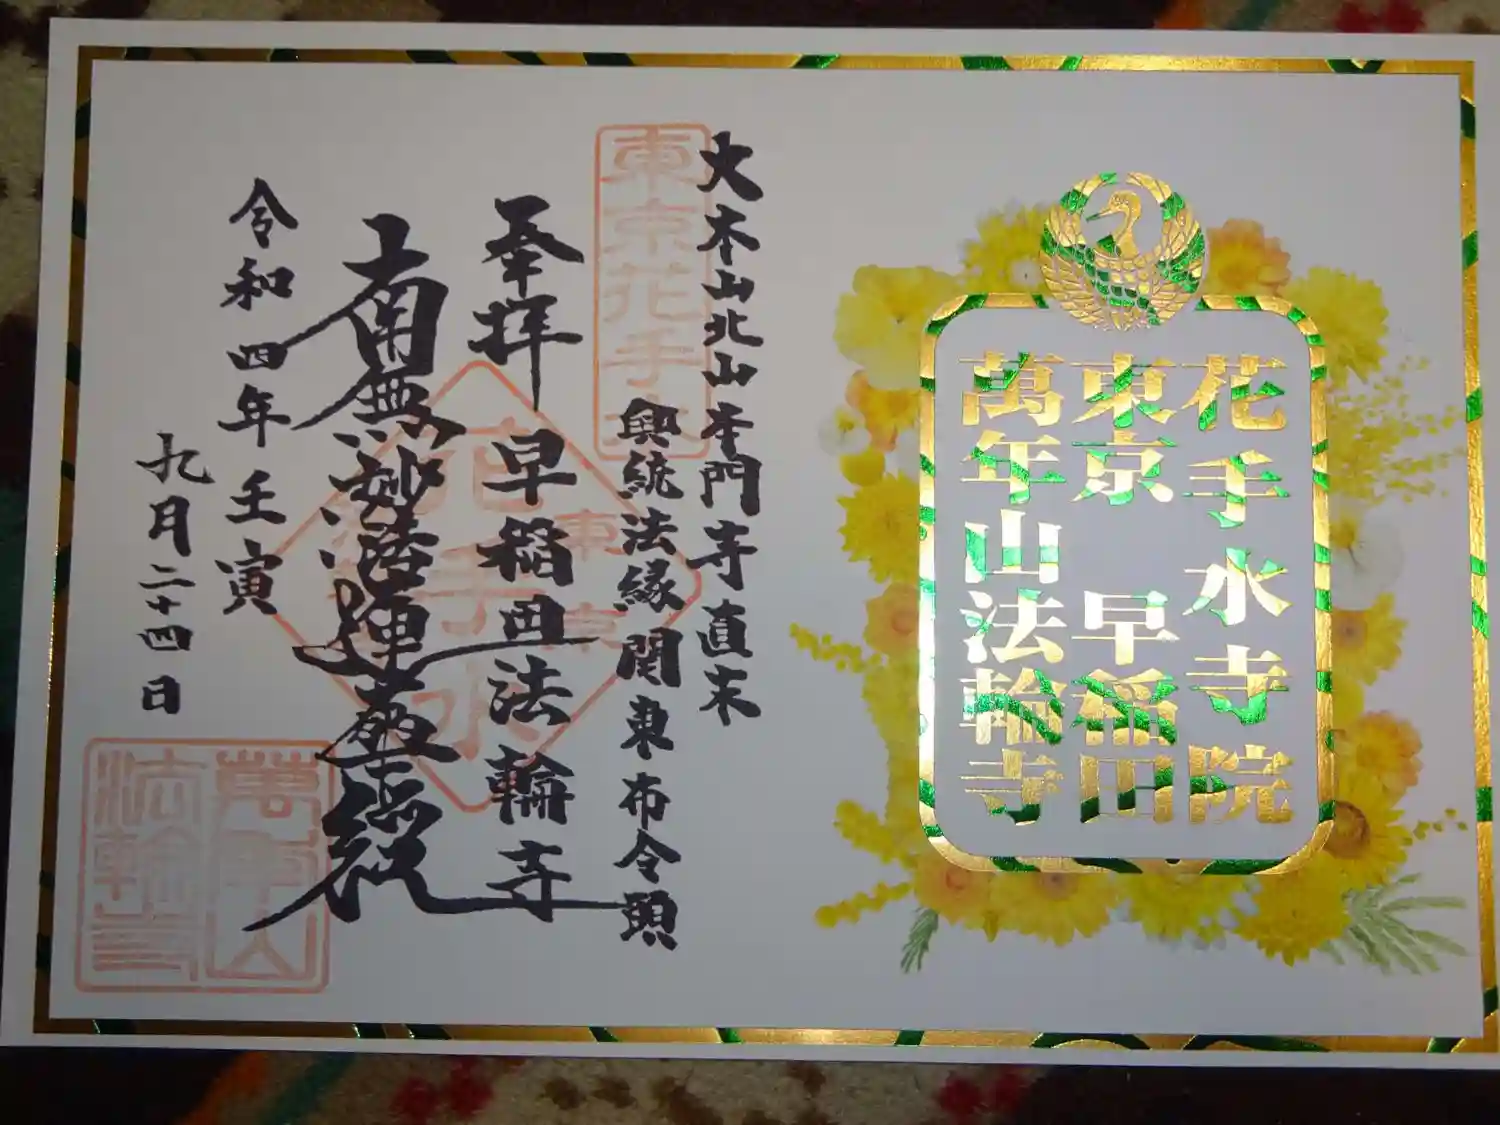 花手水寺院
東京 早稲田
萬年山法輪寺
大本山北山本門寺直末
興統法縁関東布令頭
東京花手水
奉拝 早稲田法輪寺
南無妙法蓮華経
東京
花手水
令和四年壬寅
九月二十四日
萬年山
法輪寺